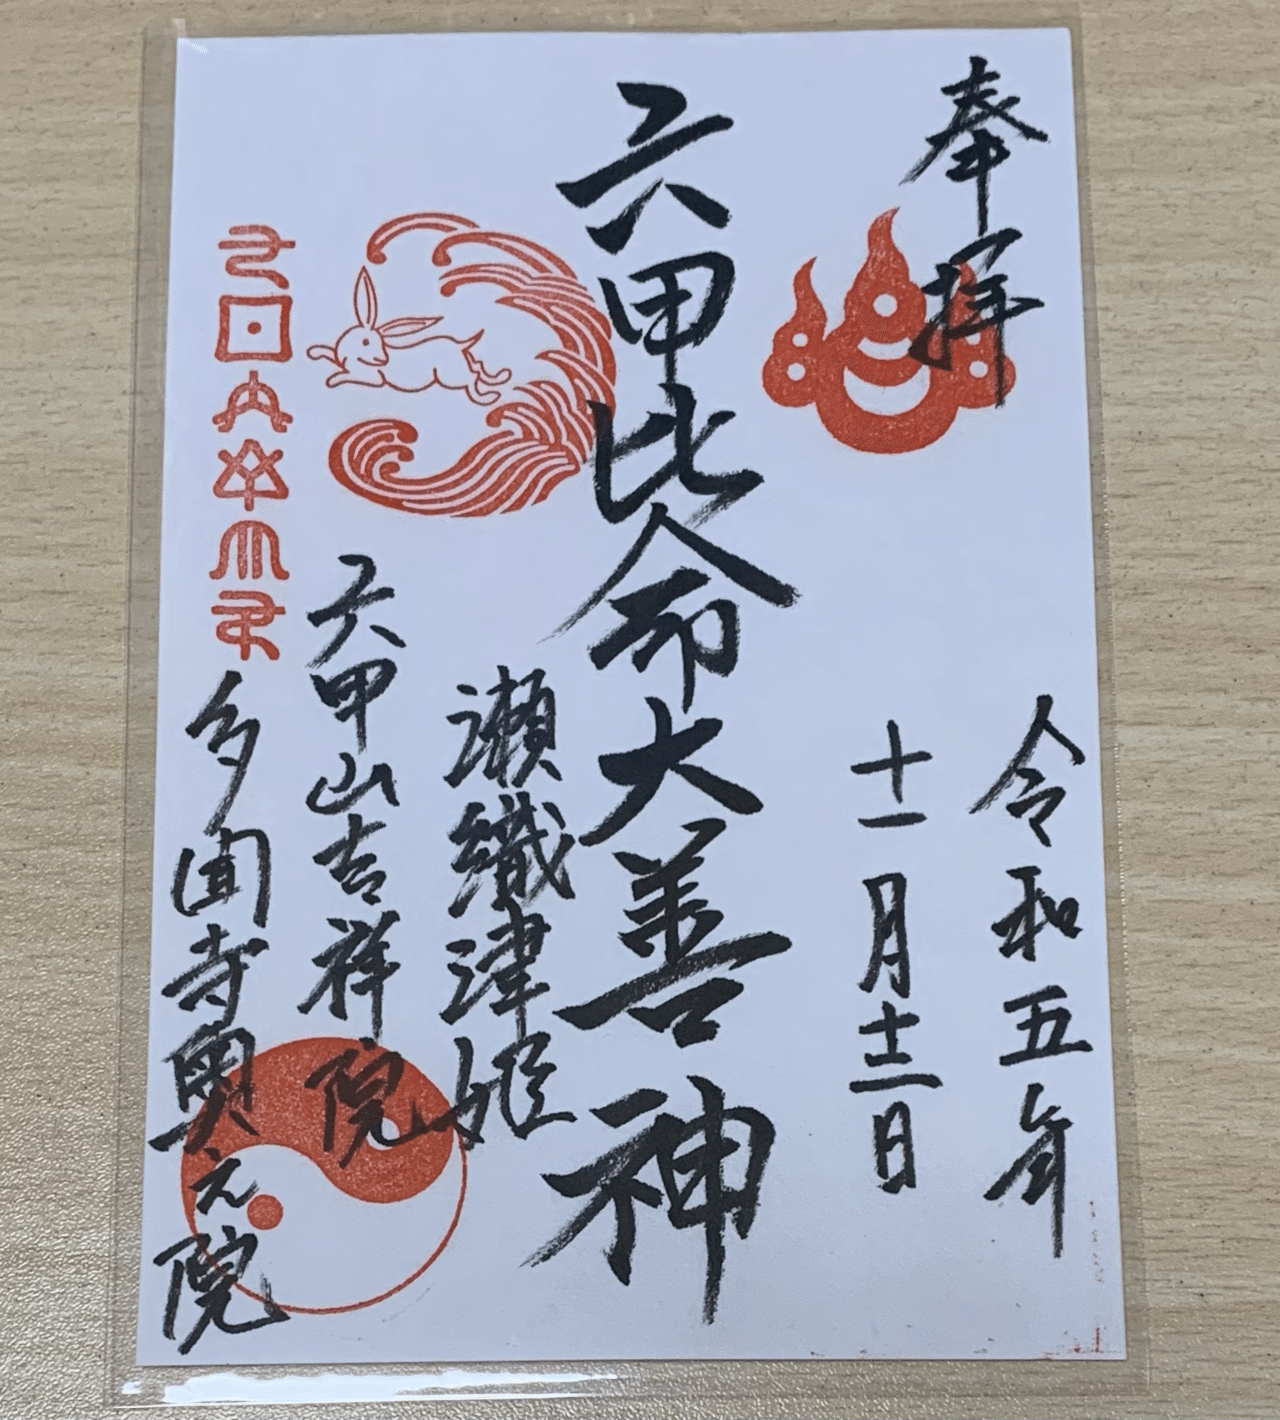 奉拝
令和五年
十一月十二日
六甲比命大善神
瀬織津姫
六甲山吉祥院
多聞寺奥之院